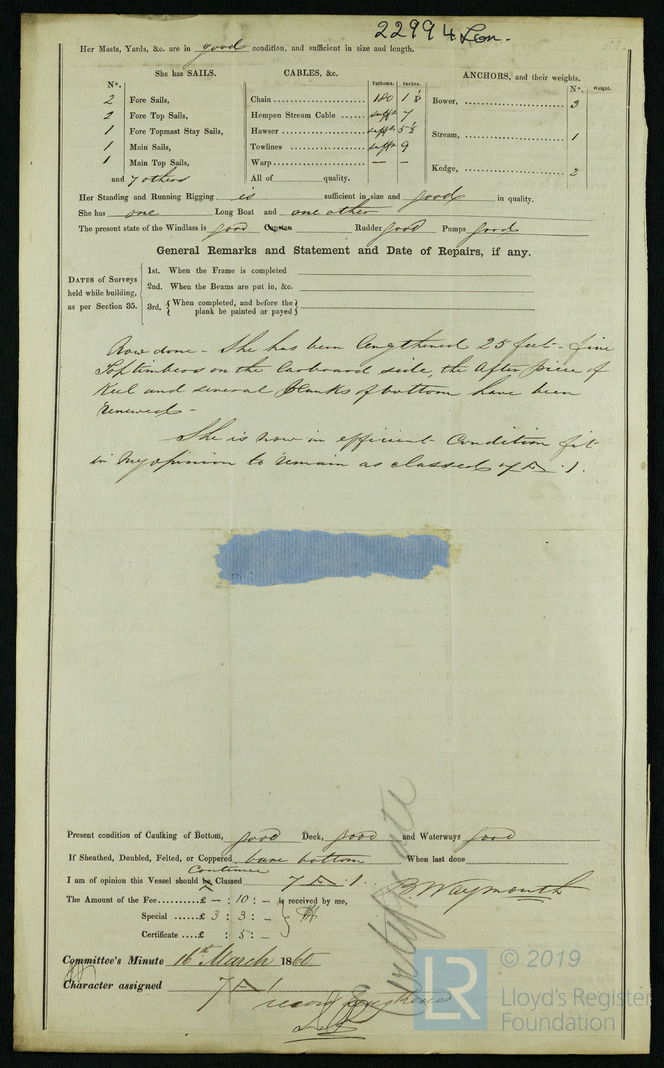 22994 Lon.
Her Masts, Yards, &c. are in good condition, and sufficient in size and length.
She has SAILS.
N°.
2 Fore Sails,
2 Fore Top Sails,
1 Fore Topmast Stay Sails,
1 Main Sails,
1 Main Top Sails,
and 7 others
CABLES, &c.
Fathoms. Inches.
Chain 180 1 1/8
Hempen Stream Cable sufft 7
Hawser sufft 5 1/2
Towlines sufft 9
Warp — —
All of quality.
ANCHORS, and their weights.
N°. Weight.
Bower, 3
Stream, 1
Kedge, 2
Her Standing and Running Rigging is sufficient in size and good in quality.
She has one Long Boat and one other
The present state of the Windlass is good Capstan Rudder good Pumps good
General Remarks and Statement and Date of Repairs, if any.
DATES of Surveys held while building, as per Section 35.
1st. When the Frame is completed
2nd. When the Beams are put in, &c.
3rd. { When completed, and before the plank be painted or payed }
Now done - She has been lengthened 25 feet - five
Toptimbers on the larboard side, the after piece of
Keel and several planks of bottom have been
renewed -
She is now in efficient Condition fit
in my opinion to remain as classed 7 A 1.
Present condition of Caulking of Bottom, good Deck, good and Waterways good
If Sheathed, Doubled, Felted, or Coppered bare bottom When last done
Continue
I am of opinion this Vessel should be Classed 7 A 1.
B. Waymouth
The Amount of the Fee £ — : 10 : — is received by me,
Special £ 3 : 3 : —
Certificate £ : 5 : —
Committee's Minute 16th March 1860
Character assigned 7 A 1
record lengthened
LR
© 2019
Lloyd's Register
Foundation